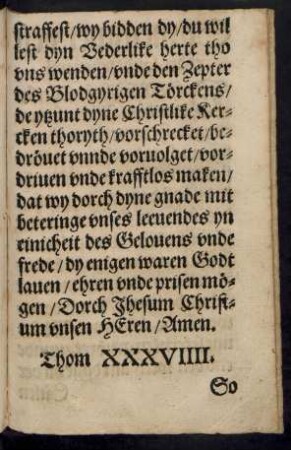 straffest/wy bidden dy/du wil
lest dyn Vederlike herte tho
vns wenden/vnde den Zepter
des Blodgyrigen Törckens/
de ytzunt dyne Christlike Ker-
cken thoryth/vorschrecket/be-
dröuet vnnde voruolget/vor-
driuen vnde krafftlos maken/
dat wy dorch dyne gnade mit
beteringe vnses leeuendes yn
einicheit des Gelouens vnde
frede/dy enigen waren Godt
lauen/ehren vnde prisen mö-
gen/Dorch Jhesum Christ-
um vnsen HEren/Amen.
Thom XXXVIIII.
So